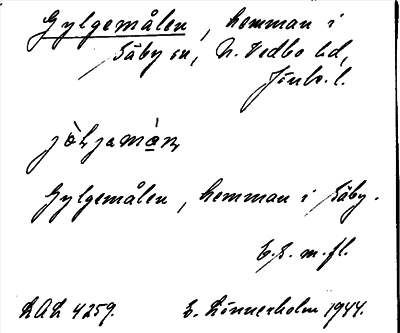 Gylgemålen, hemman i
Säby sn, N. Vedbo hd,
Jönk. l.
Gylgemålen, hemman i Säby.
E.L. m.fl.
LAL 4259. E. Linnerholm 1944.